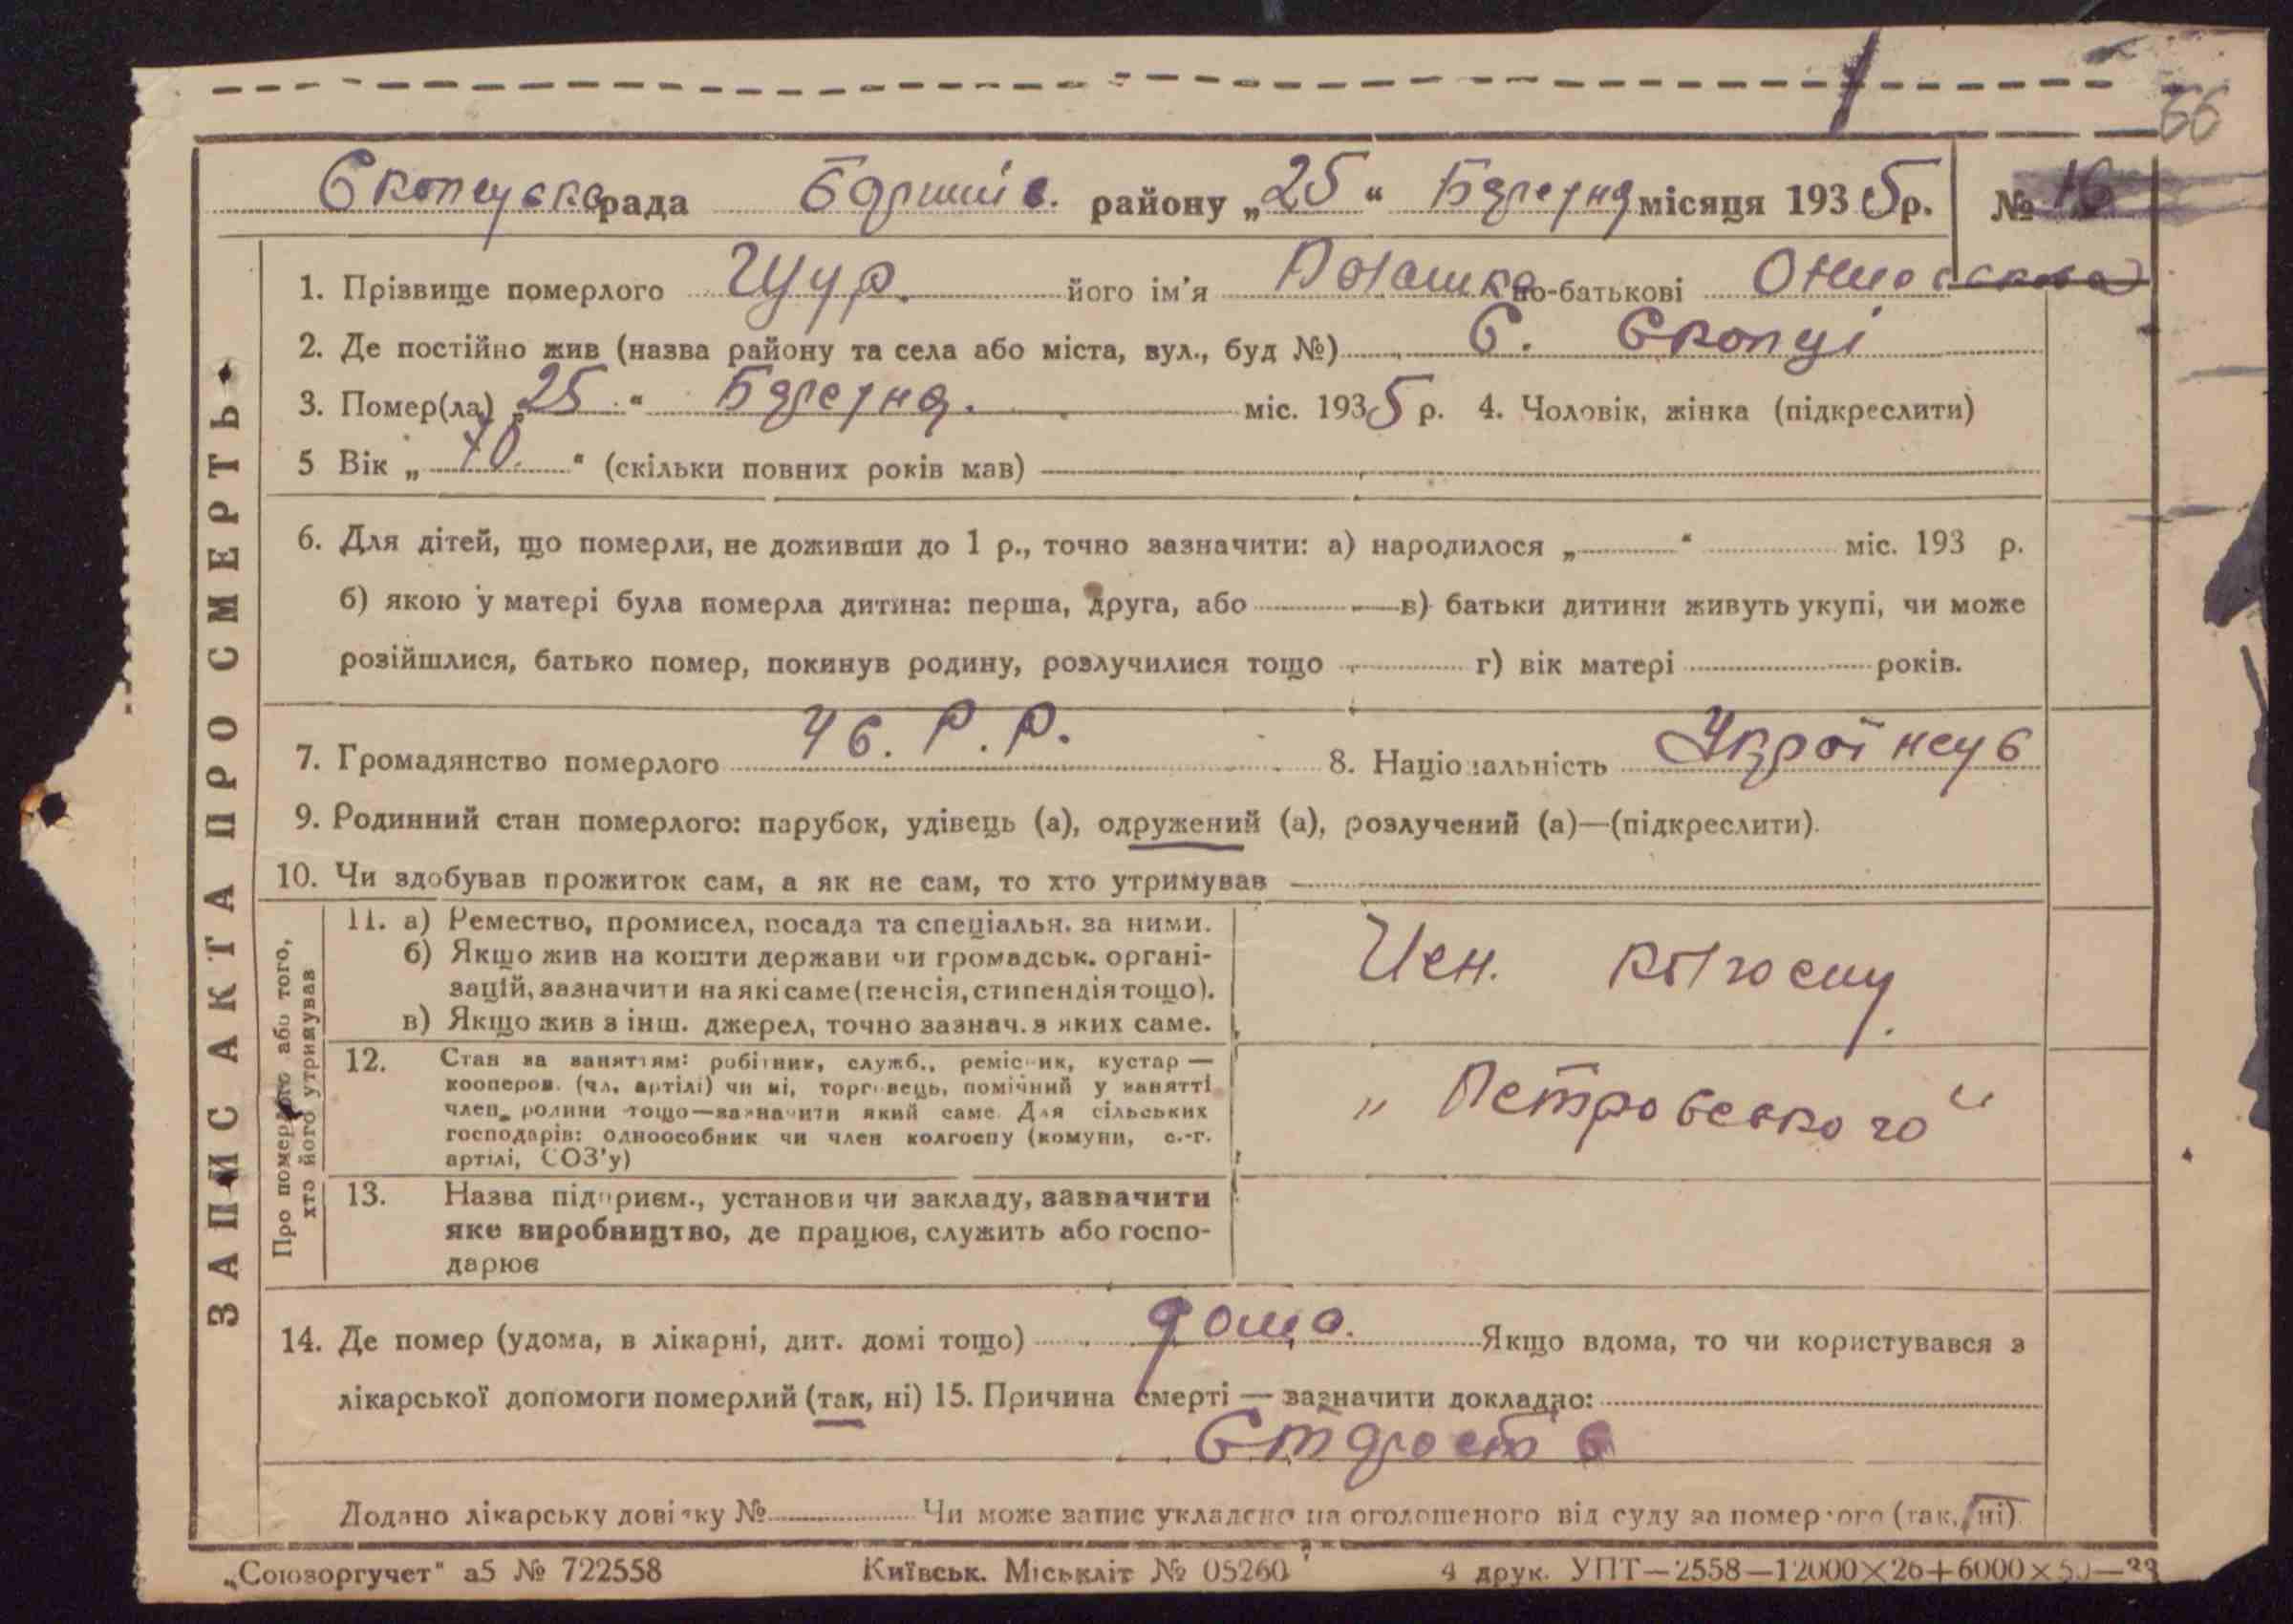 66
Скопецька рада Баришів. району „25“ Березня місяця 1935 р. № 16
1. Прізвище померлого Щур. його ім'я по-батькові
2. Де постійно жив (назва району та села або міста, вул., буд №) С. Скопці
3. Помер(ла) „25“ Березня. міс. 1935 р. 4. Чоловік, жінка (підкреслити)
5 Вік „70.“ (скільки повних років мав)
6. Для дітей, що померли, не доживши до 1 р., точно зазначити: а) народилося „ “ міс. 193 р.
б) якою у матері була померла дитина: перша, друга, або в) батьки дитини живуть укупі, чи може
розійшлися, батько помер, покинув родину, розлучилися тощо г) вік матері років.
7. Громадянство померлого УС.Р.Р. 8. Національність Українець
9. Родинний стан померлого: парубок, удівець (а), одружений (а), розлучений (а)—(підкреслити).
10. Чи здобував прожиток сам, а як не сам, то хто утримував
Про померлого або того,
хто його утримував
11. а) Ремество, промисел, посада та спеціальн. за ними.
б) Якщо жив на кошти держави чи громадськ. органі-
зацій, зазначити на які саме (пенсія, стипендія тощо).
в) Якщо жив з інш. джерел, точно зазнач. з яких саме.
Член. колгоспу
12. Стан за заняттям: робітник, служб., ремісник, кустар —
кооперов. (чл. артілі) чи ні, торговець, помічний у занятті
член родини тощо—зазначити який саме. Для сільських
господарів: одноособник чи член колгоспу (комуни, с.-г.
артілі, СОЗ'у)
„Петровського“
13. Назва підприєм., установи чи закладу, зазначити
яке виробництво, де працює, служить або госпо-
дарює
14. Де помер (удома, в лікарні, дит. домі тощо) дома. Якщо вдома, то чи користувався з
лікарської допомоги померлий (так, ні) 15. Причина смерті — зазначити докладно:
Старость
Додано лікарську довідку № Чи може запис укладено на оголошеного від суду за померлого (так, ні)
ЗАПИС АКТА ПРО СМЕРТЬ
„Союзоргучет“ а5 № 722558 Київськ. Міськліт № 05260 4 друк. УПТ—2558—12000×26+6000×50—33